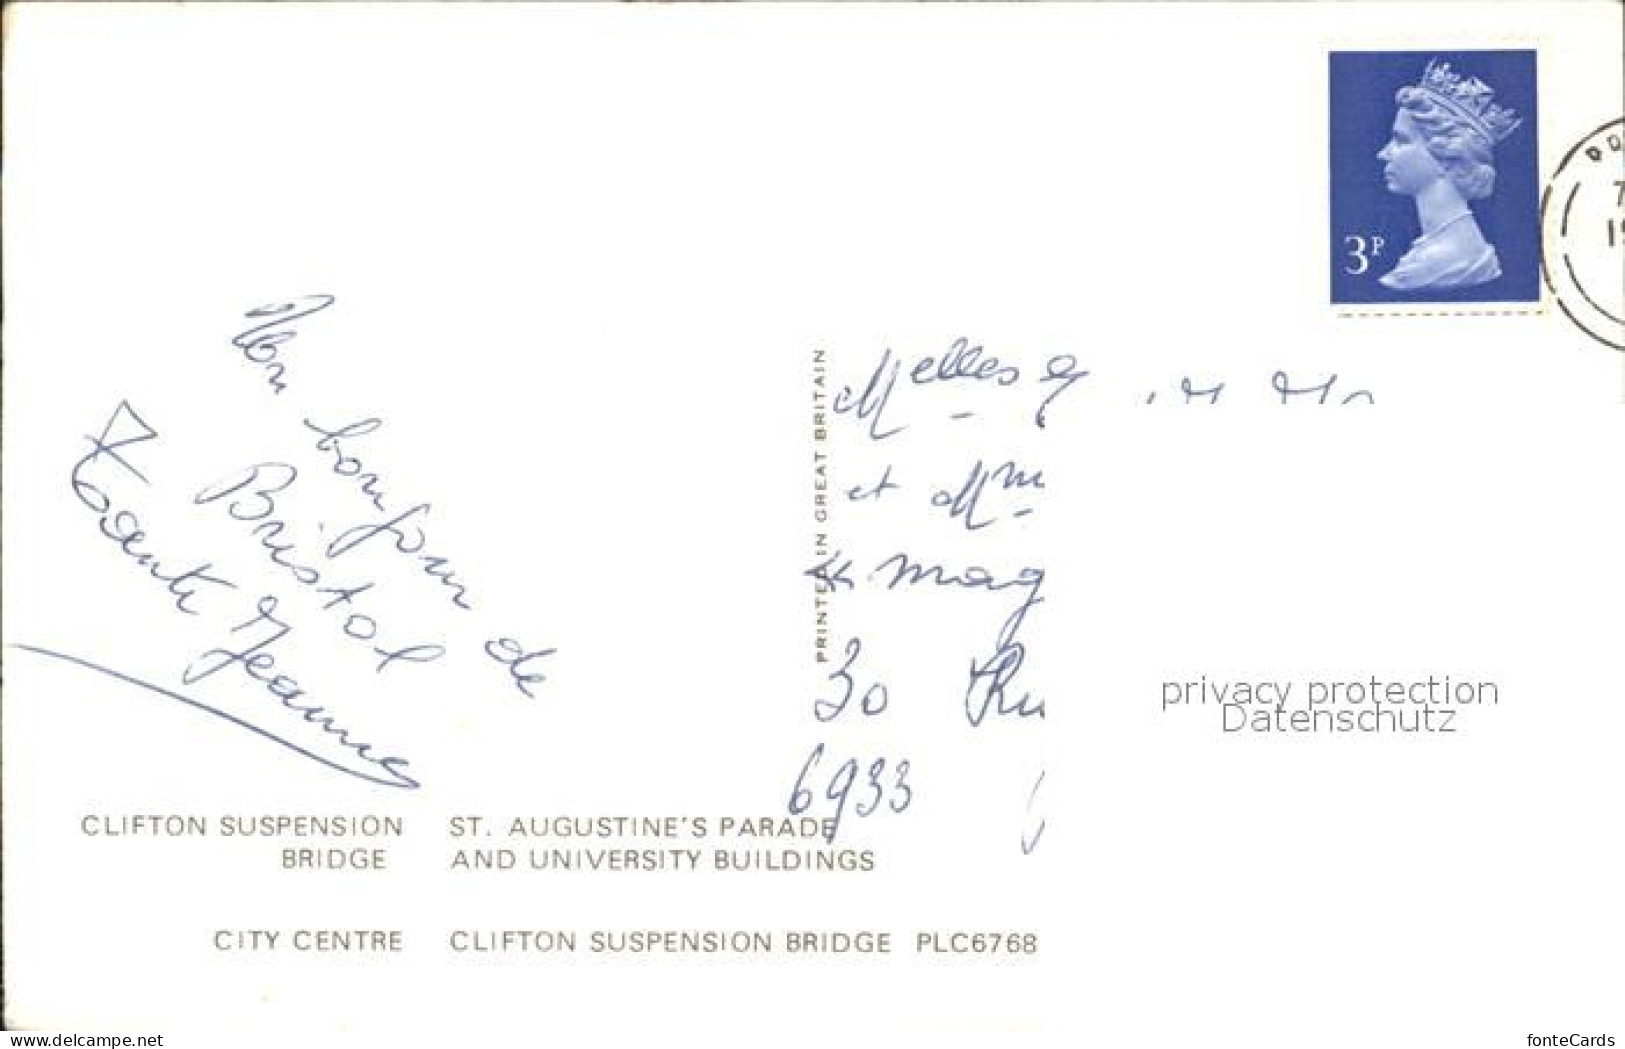 3P
Mon bonjour de
Bristol
Tante Jeanne
PRINTED IN GREAT BRITAIN
Melles
et Mm
" mag
30 Ru
6933
privacy protection
Datenschutz
CLIFTON SUSPENSION
BRIDGE
ST. AUGUSTINE'S PARADE
AND UNIVERSITY BUILDINGS
CITY CENTRE
CLIFTON SUSPENSION BRIDGE PLC6768
www.delcampe.net
fonteCards